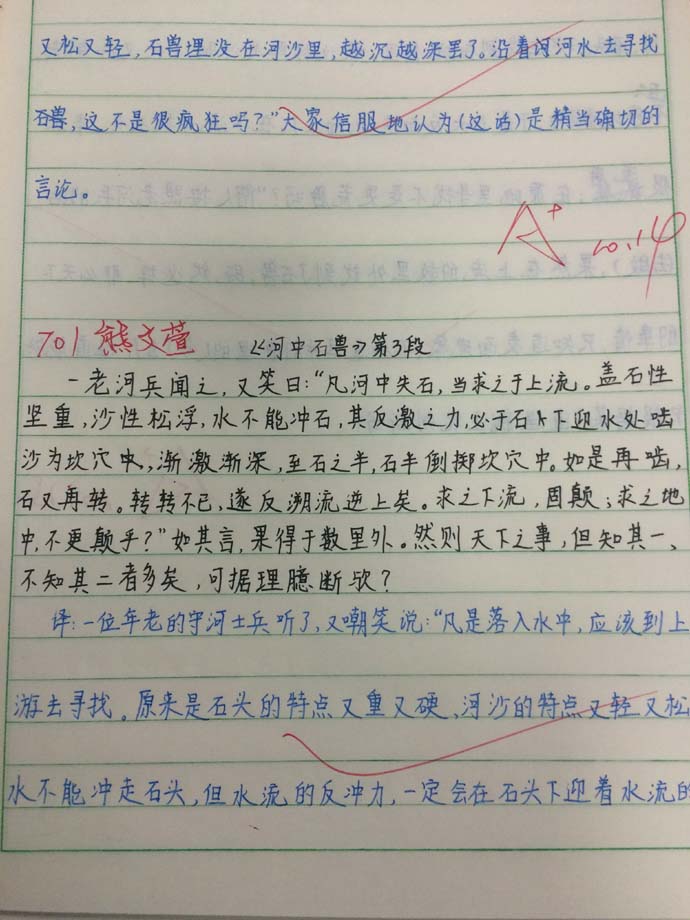 又松又轻，石兽埋没在河沙里，越沉越深罢了。沿着河水去寻找
石兽，这不是很疯狂吗？”大家信服地认为（这话）是精当确切的
言论。
A+
701 熊文萱
《河中石兽》第3段
一老河兵闻之，又笑曰：“凡河中失石，当求之于上流。盖石性
坚重，沙性松浮，水不能冲石，其反激之力，必于石下迎水处啮
沙为坎穴中，渐激渐深，至石之半，石半倒掷坎穴中。如是再啮，
石又再转。转转不已，遂反溯流逆上矣。求之下流，固颠；求之地
中，不更颠乎？”如其言，果得于数里外。然则天下之事，但知其一、
不知其二者多矣，可据理臆断欤？
译：一位年老的守河士兵听了，又嘲笑说：“凡是落入水中，应该到上
游去寻找。原来是石头的特点又重又硬、河沙的特点又轻又松
水不能冲走石头，但水流的反冲力，一定会在石头下迎着水流的